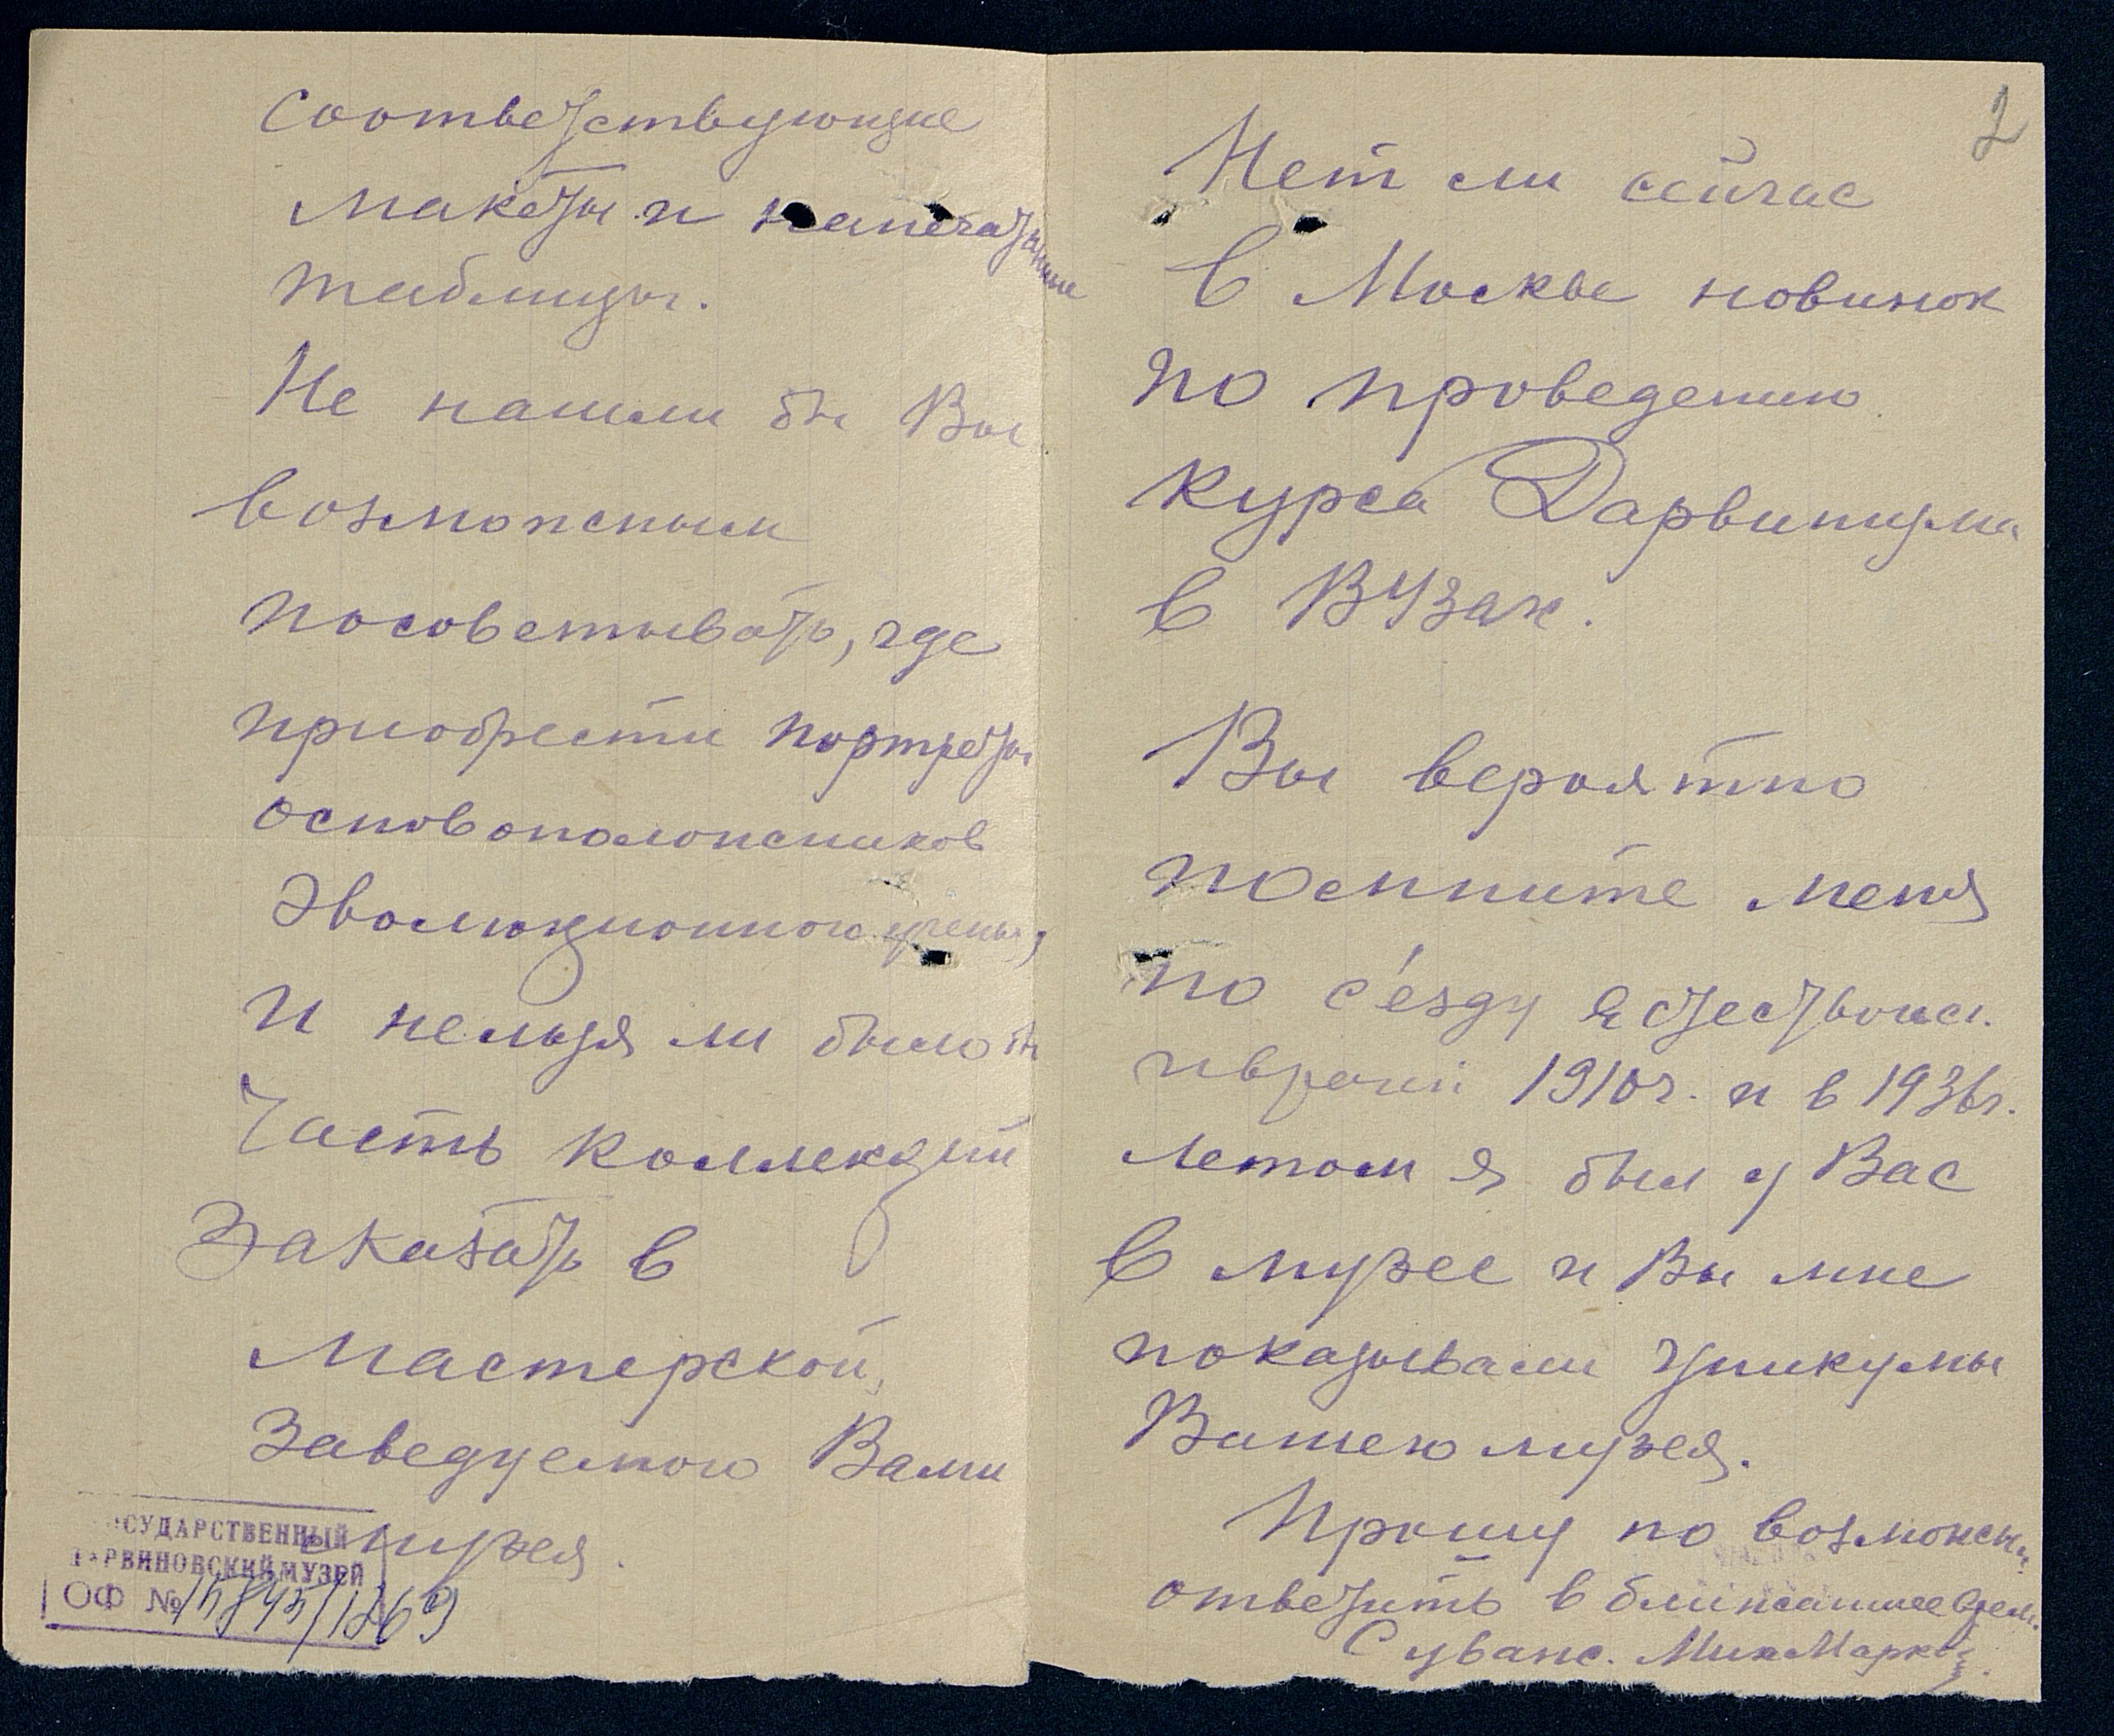 соответствующие
макеты и напечатанные
таблицы.
Не нашли бы Вы
возможным
посоветывать, где
приобрести портреты
основоположников
Эволюционного ученья,
и нельзя ли было бы
Часть коллекций
Заказать в
Мастерской,
Заведуемого Вами
музея.
ГОСУДАРСТВЕННЫЙ
ДАРВИНОВСКИЙ МУЗЕЙ
ОФ № 15845/1869
2
Нет ли сейчас
в Москве новинок
по проведению
курса Дарвинизма
в ВУЗах.
Вы вероятно
помните меня
по с'езду Естествоисп.
и врачей 1910 г. и в 1936 г.
летом я был у Вас
в музее и Вы мне
показывали Уникумы
Вашего музея.
Прошу по возможн.
ответить в ближайшее врем.
С уваж. Мих Марков